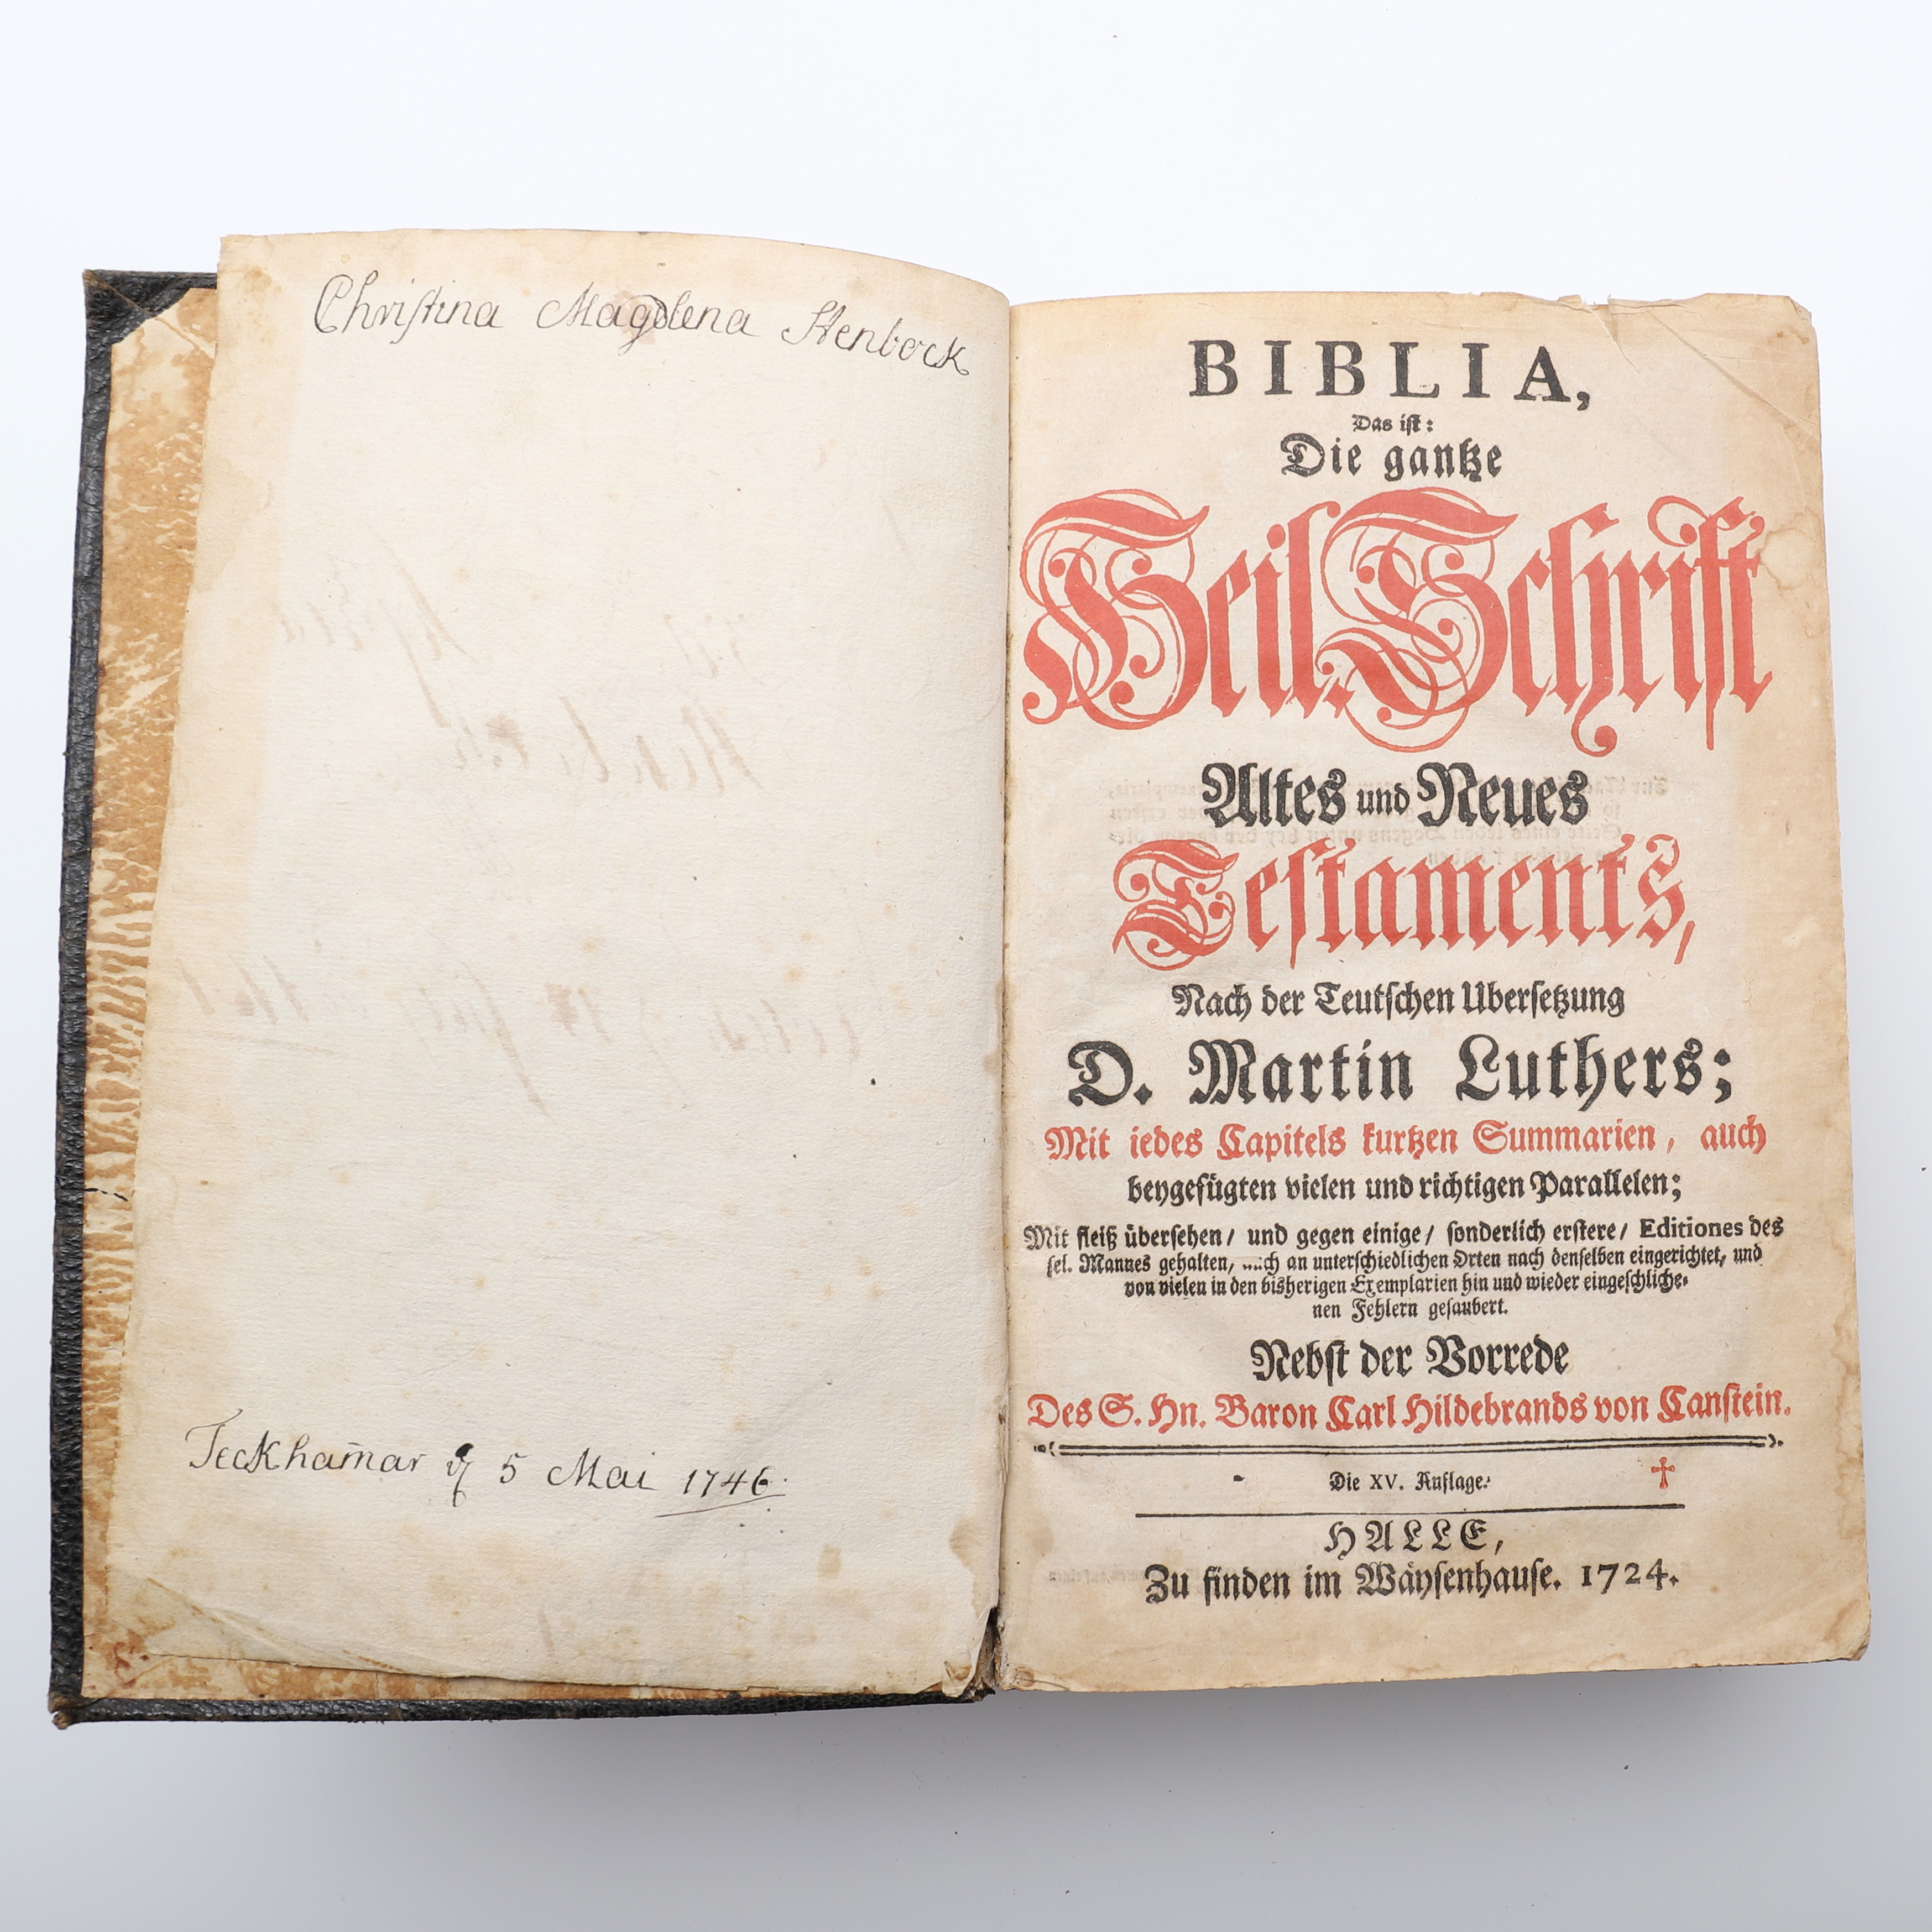 Christina Magdlena Stenbock
Teckham̄ar d 5 Mai 1746.
BIBLIA,
Das iſt:
Die gantze
Heil. Schrift
Altes und Neues
Teſtaments,
Nach der Teutſchen Uberſetzung
D. Martin Luthers;
Mit iedes Capitels kurtzen Summarien, auch
beygefügten vielen und richtigen Parallelen;
Mit fleiß überſehen/ und gegen einige/ ſonderlich erſtere/ Editiones des
ſel. Mannes gehalten, auch an unterſchiedlichen Orten nach denſelben eingerichtet, und
von vielen in den bisherigen Exemplarien hin und wieder eingeſchliche-
nen Fehlern geſaubert.
Nebſt der Vorrede
Des S. Hn. Baron Carl Hildebrands von Canſtein.
Die XV. Auflage.
HALLE,
Zu finden im Wäyſenhauſe. 1724.